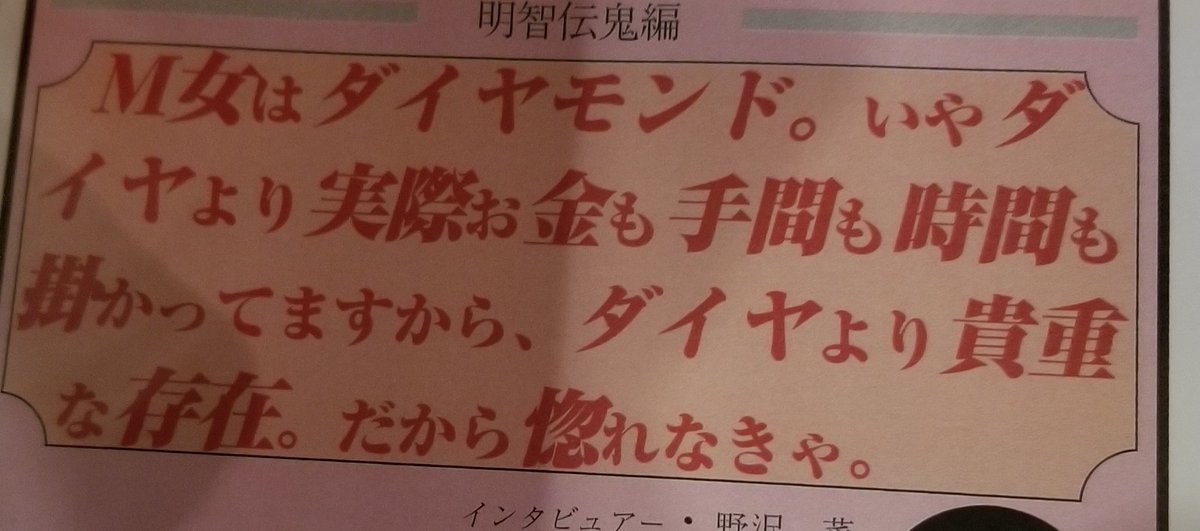 明智伝鬼編
M女はダイヤモンド。いやダ
イヤより実際お金も手間も時間も
掛かってますから、ダイヤより貴重
な存在。だから惚れなきゃ。
インタビュアー・野沢